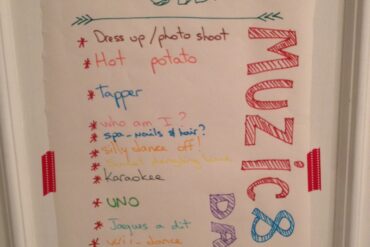 * Dress up / photo shoot
* Hot potato
* Tapper
* who am I ?
* spa - nails & hair?
* silly dance off!
* Karaokee
* UNO
* Jaques a dit
* wii - dance
MUZIC &
DA